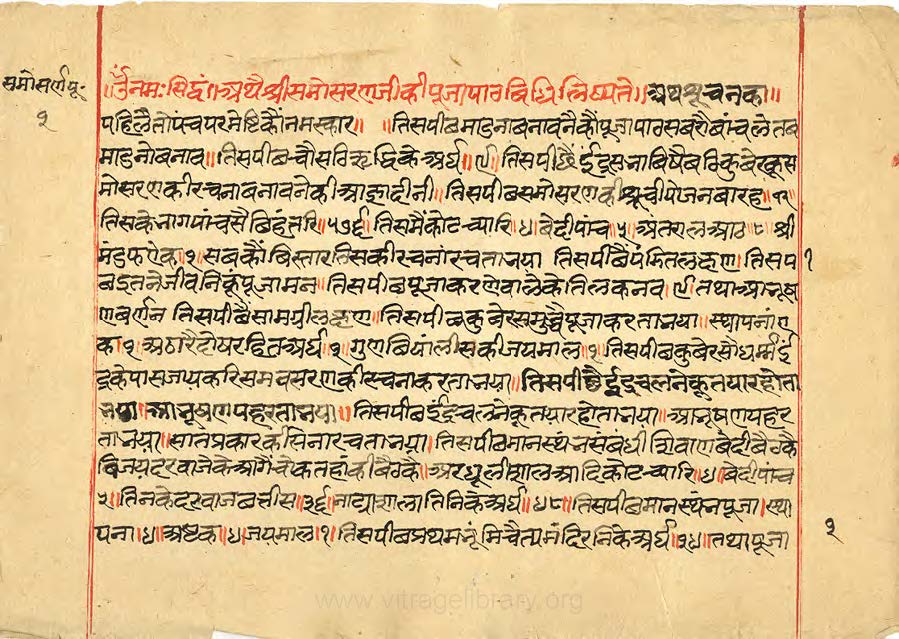 समोसर्णपू॰
१
॥ॐनमःसिद्धं॥अथश्रीसमोसरणजीकीपूजापाठविधिलिष्यते॥अथसूचनका॥
पहिलैतोपंचपरमेष्टिकौंनमस्कार॥ ॥तिसपीछमाडनाबनावनैकौपूजापाठसबरौबांचलेतब
माडनोबनाव॥तिसपीछचौसठिऋद्धिकेअर्घ॥ तिसपीछैईंद्रसभाविषैबठिकुबेरकूस
मोसरणकीरचनाबनावनेकीआज्ञादीनी॥तिसपीछसमोसरणकीभूचीयोजनबारह॥१२॥
तिसकेनागपांचसैबिहंतरि॥५७२॥तिसमैंकोटच्यारि॥४॥बेदीपांच॥५॥अंतरालआठ॥८॥श्री
मंडफऐक॥१॥सबकौंबिस्तारतिसकीरचनांरचताभया तिसपीछैपंडितलक्षण॥तिसप
१
छइतनेजीवनिकूंपूजामन॥तिसपीछपूजाकरणेवालेकेतिलकनव॥९॥तथाआभूष
णबर्णन तिसपीछैसामग्रीलक्षण॥तिसपीछकुबेरसमुच्चैपूजाकरताभया॥स्थापनां
का॥१॥अठारैदोषरहितअर्घ॥१॥गुणबियांलीसकीजयमाल॥१॥तिसपीछकुबेरसौधर्म्मईं
द्रकेपासजायकरिसमवसरणकीरचनाकरताभया॥तिसपीछैईंद्रचलनेकूतयारहोता
भया॥आभूषणपहरताभया॥तिसपीछईंद्रचलनेकूतयारहोताभया॥आभूषणपहर
ताभया॥सातप्रकारकीसेनारचताभया॥तिसपीछमानस्थंभसंबंधी बेदीबैठके
बिजयदरवाजेकेआगैचोकतहांकीबैठके॥अरधूलीशालआदिकोटच्यारि॥४॥बेदीपांच
५॥तिनकेदरवाजबत्तीस॥३२॥नाट्यशालातिनिकेअर्घ॥४८॥तिसपीछमानस्थंभपूजा॥स्था
पना॥४॥अष्टका॥४॥जयमाल॥१॥तिसपीछप्रथमभूंमिचैत्यमंदिरनिकेअर्घ॥३४॥तथापूजा
१
www.vitragelibrary.org